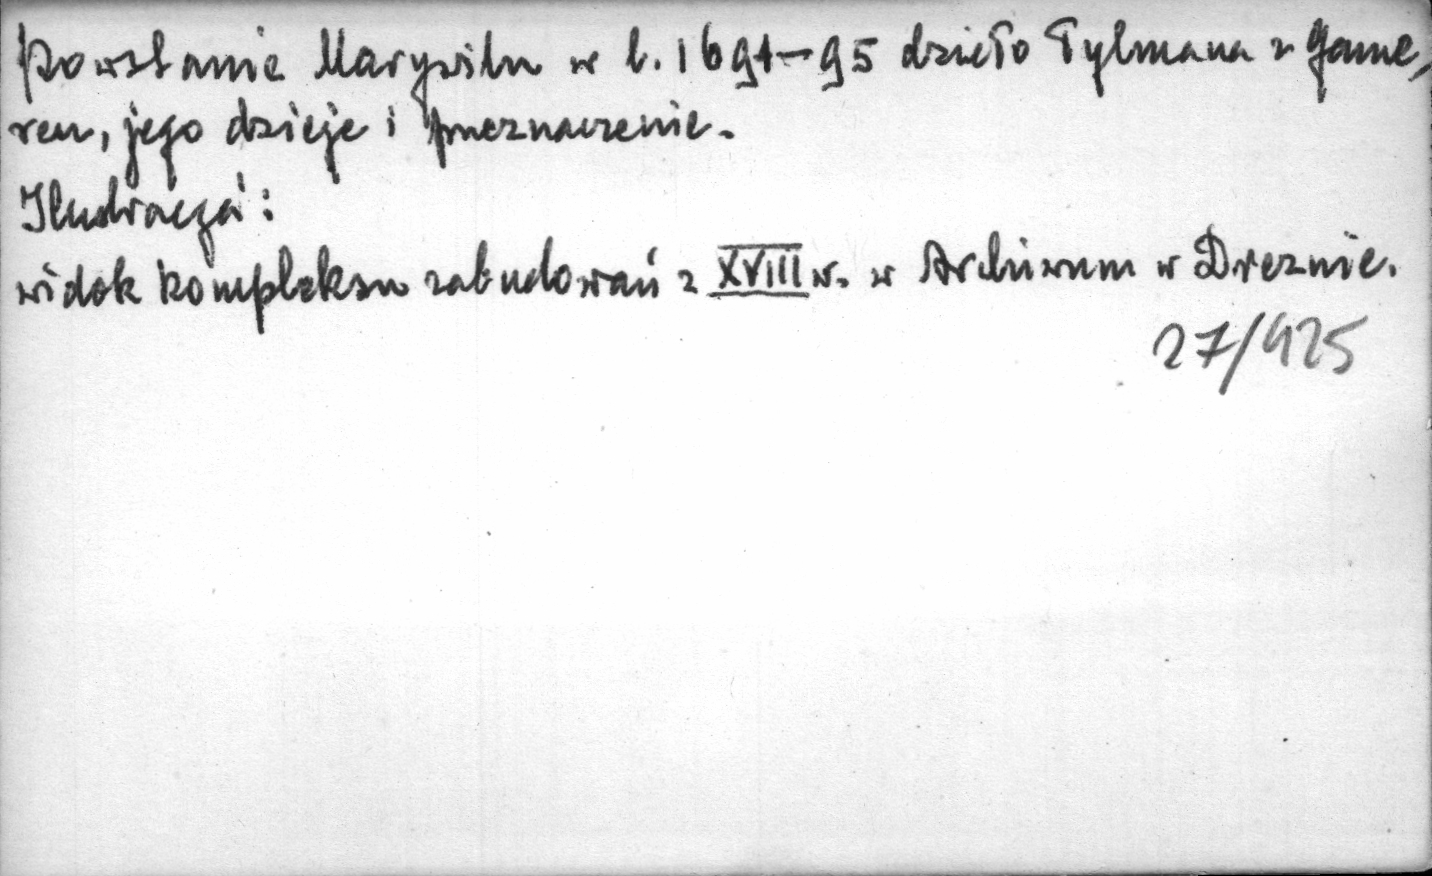 Powstanie Marywilu w l. 1691–95 dzieło Tylmana z Game,
ren, jego dzieje i przeznaczenie.
Ilustracja:
widok kompleksu zabudowań z XVIII w. w Archiwum w Dreznie.
27/425